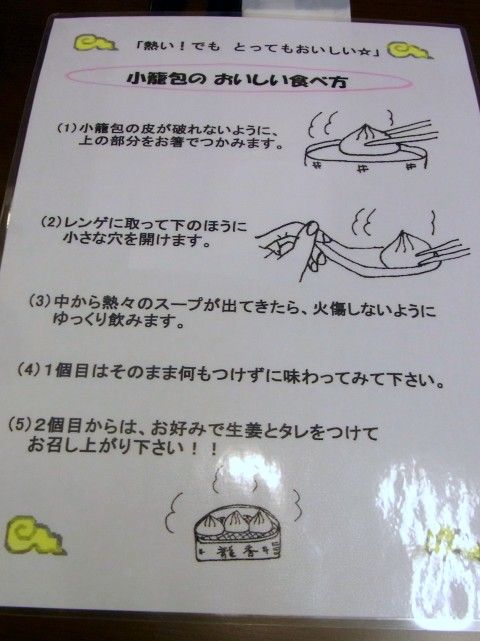 「熱い！でも とってもおいしい☆」
小籠包の おいしい食べ方
(1)小籠包の皮が破れないように、
上の部分をお箸でつかみます。
(2)レンゲに取って下のほうに
小さな穴を開けます。
(3)中から熱々のスープが出てきたら、火傷しないように
ゆっくり飲みます。
(4)１個目はそのまま何もつけずに味わってみて下さい。
(5)２個目からは、お好みで生姜とタレをつけて
お召し上がり下さい！！
龍香